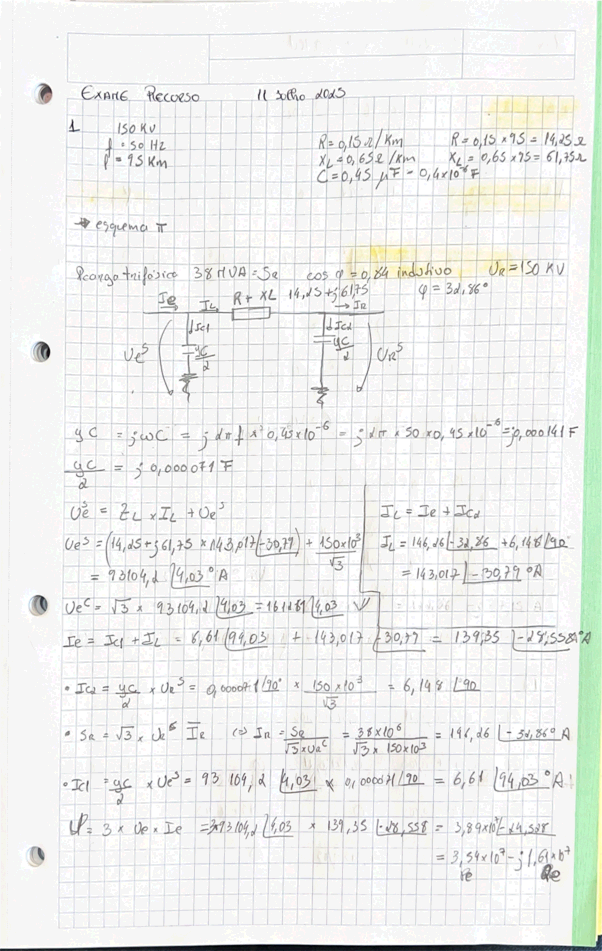 EXAME RECURSO 11 Julho 2025
1 150 KV
f = 50 Hz R = 0,15 Ω/Km R = 0,15 × 95 = 14,25 Ω
l = 95 Km XL = 0,65 Ω/Km XL = 0,65 × 95 = 61,75 Ω
C = 0,45 μF - 0,4×10⁻⁶ F
→ esquema π
Rcarga trifásico 38 MVA = SR cos φ = 0,84 indutivo UR = 150 KV
Ie IL R + XL 14,25 + j61,75 → IR φ = 32,86°
↓Ic1 ↓Ic2
Ues yC/2 yC/2 URs
yC = jωC = j 2π f × 0,45×10⁻⁶ = j 2π × 50 × 0,45 × 10⁻⁶ = j0,000141 F
yC/2 = j 0,000071 F
Ues = ZL × IL + Ues IL = Ie + Ic2
Ues = (14,25 + j61,75 × 143,017 ∠-30,79) + 150×10³/√3 IL = 146,26 ∠-32,86 + 6,148 ∠90
= 93104,2 ∠4,03° A = 143,017 ∠-30,79 °A
Uec = √3 × 93104,2 ∠4,03 = 161261 ∠4,03 V
Ie = Ic1 + IL = 6,61 ∠94,03 + 143,017 ∠-30,79 = 139,35 ∠-28,558° A
• Ic2 = yC/2 × URs = 0,000071 ∠90° × 150×10³/√3 = 6,148 ∠90
• SR = √3 × URs IR (=) IR = SR/√3 × URc = 38×10⁶/√3 × 150×10³ = 146,26 ∠-32,86° A
• Ic1 = yC/2 × Ues = 93 104,2 ∠4,03 × 0,000071 ∠90 = 6,61 ∠94,03 °A
= 3 × Ue × Ie = 3×93104,2 ∠4,03 × 139,35 ∠-28,558 = 3,89×10⁷ ∠-24,528
= 3,54×10⁷ - j1,61×10⁷
Pe Qe